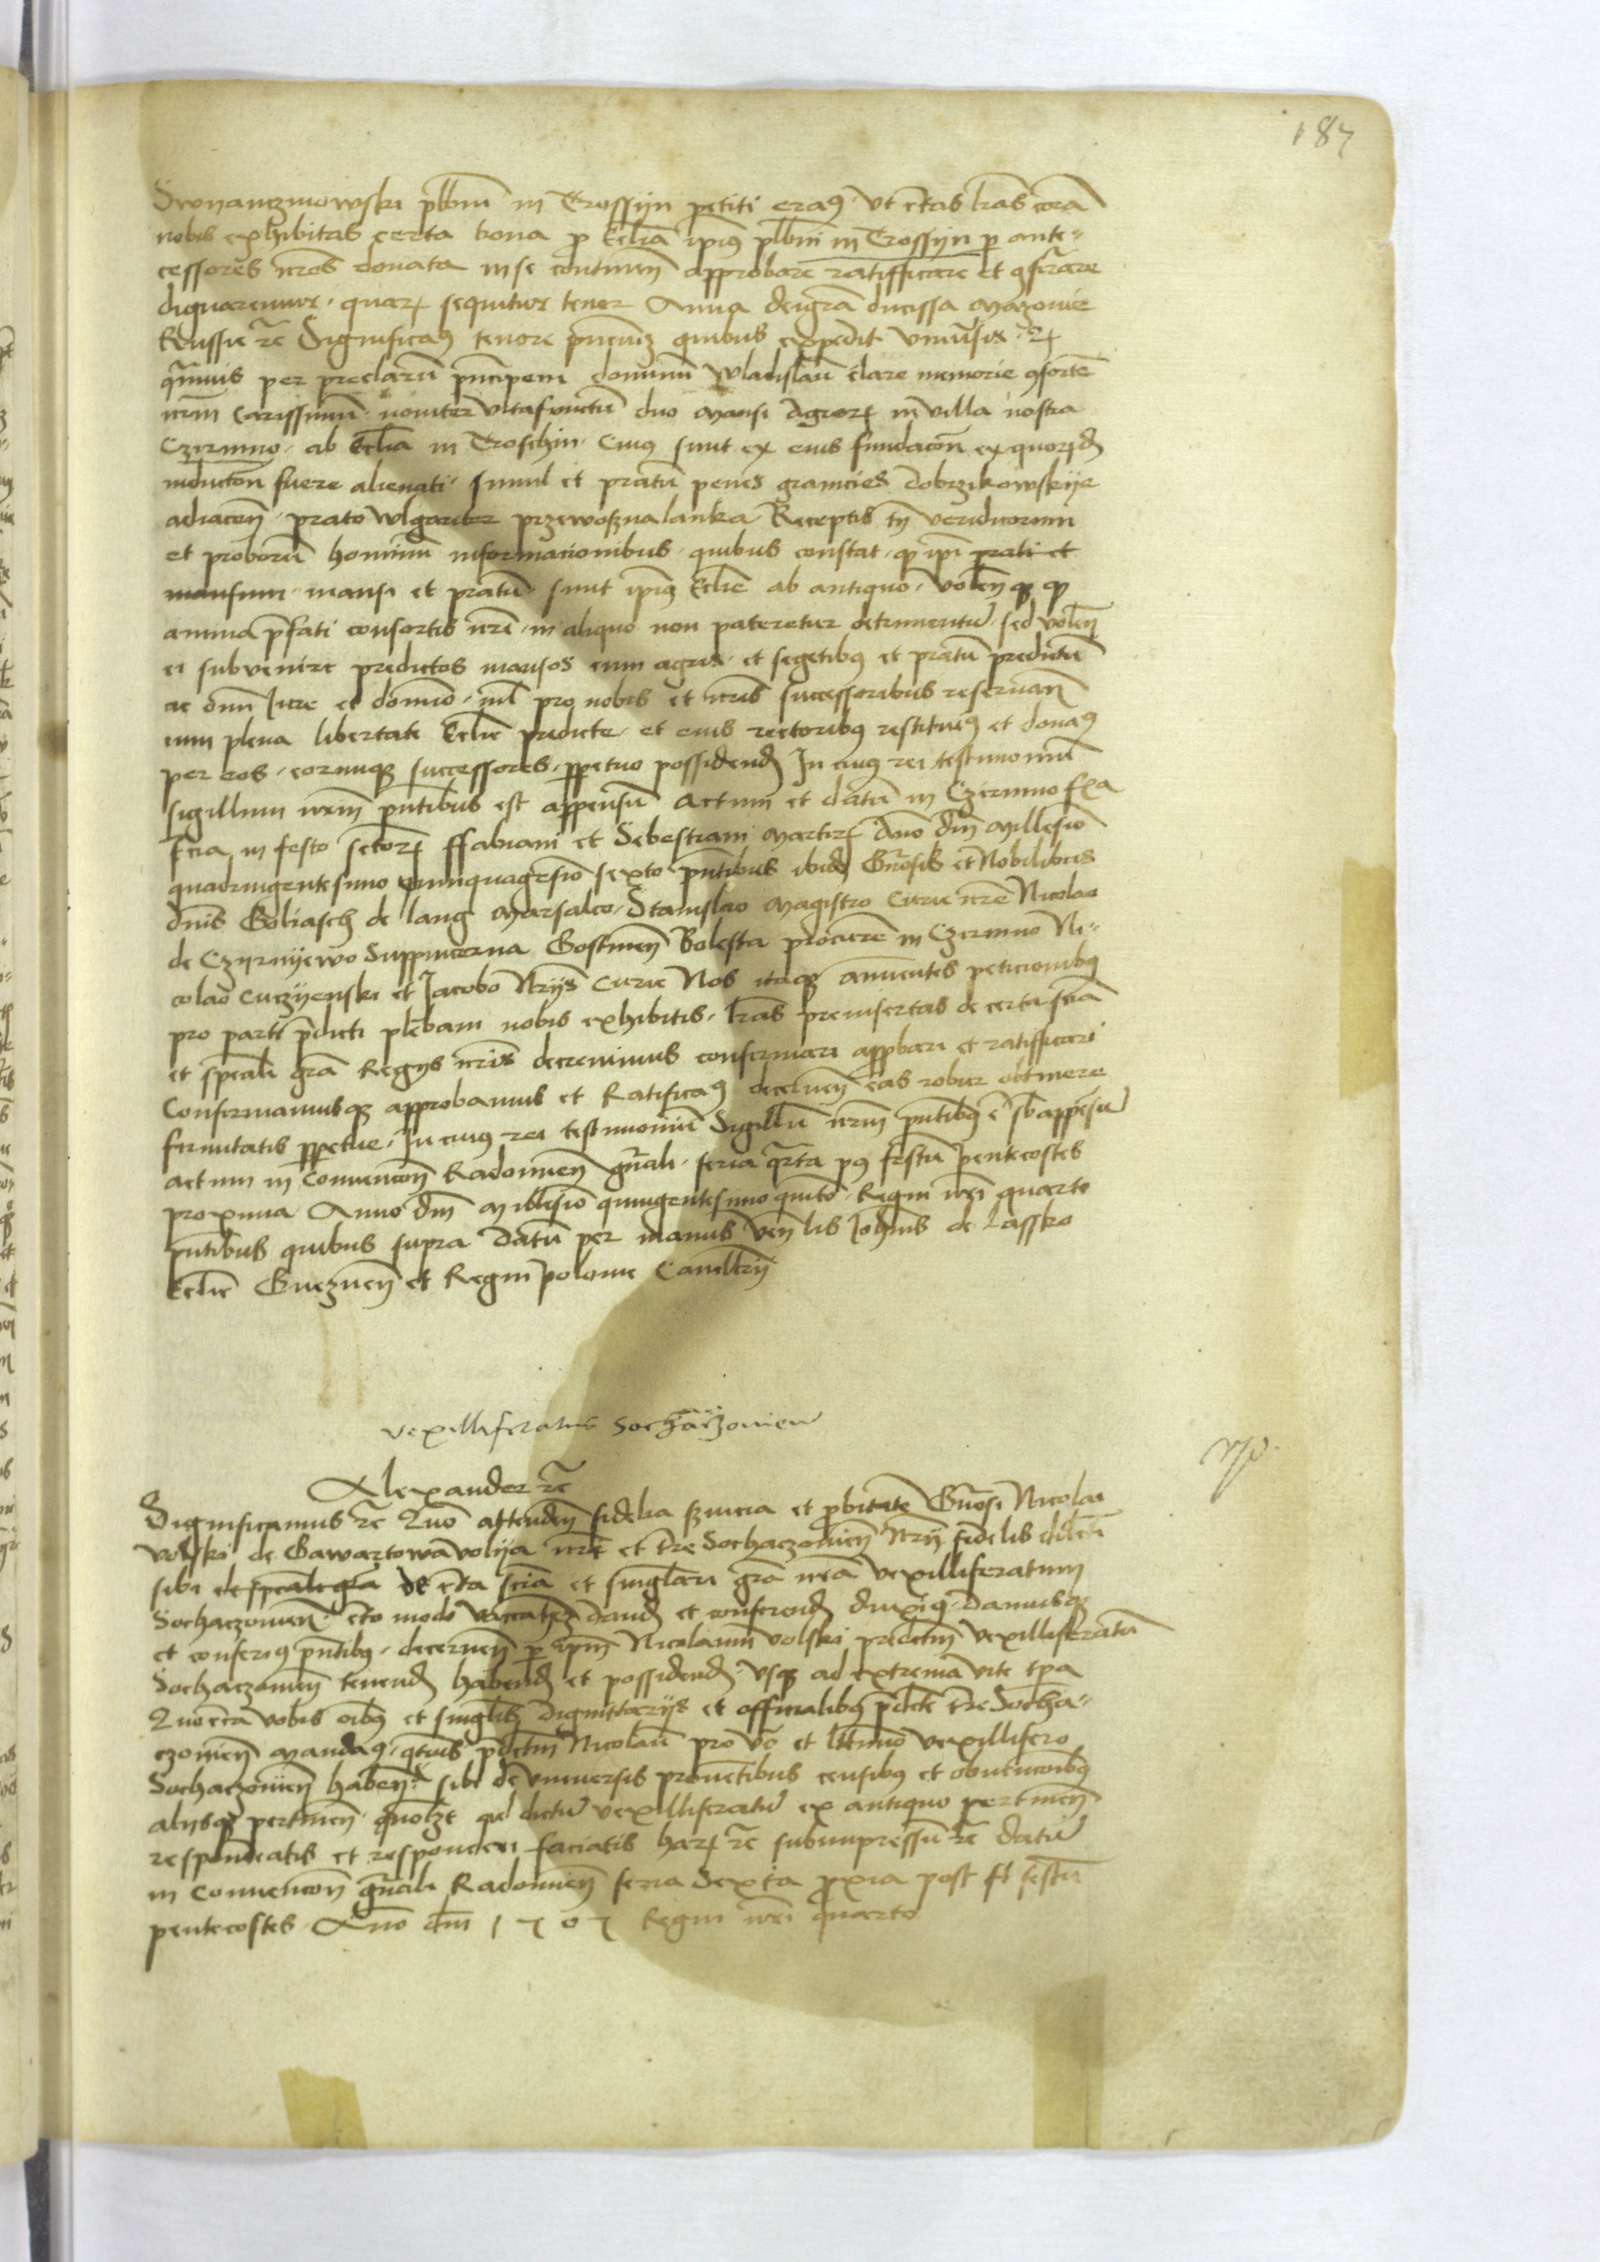 187
Swynarczmowski plbnū in Trossyn petiti eraꝰ ut cͭtas lr̄as corā
nobis exhibitas certa bona ꝓ Ecl̄ia ipīus plbni in Trossyn ꝑ ante-
cessores nr̄os donata in se continen̄ approbare ratifficare et ꝯfirare
dignaremur · quarꝝ sequitur tenor Anna dei grā ducissa Mazouie
Russie rc̄ Significaꝰ tenore pn̄ciuꝫ quibus expedit vniūsis · ꝙ
qm̄uis per preclarū pn̄cipem dominū Wladislaū clare memorie ꝯsortē
nrm̄ carissimū · nouiter vitafunctū duo mansi Agrorꝝ in villa nostra
Czirmno · ab Ecl̄ia in Troschin · cuiꝰ sunt ex eius fundacōn ex quorꝝd
inductōn fuere alienati simul et pratū penes granicies dobrzikowskye
adiacen̄ · prato wlgariter przewosznalanka Receptis tn̄ veridicorum
et proborū hominū informacionibus · quibus constat · ꝙ ip̄i prati et
mansum · mansi et pratū sunt ipīꝰ Ecl̄ie ab antiquo · volen̄qꝫ ꝙ
anima p̄fati consortis nr̄i · in aliquo non pateretur detrimentū · sed volen̄
ei subvenire predictos mansos cum agris · et segetibꝰ et pratū predictū
ac om̄i Iure et domīo · nil̄ pro nobis et nr̄is successoribus reseruan̄
cum plena libertate Ecl̄ie predicte · et eius rectoribꝰ restituiꝰ et donaꝰ
per eos · eorumqꝫ successores · ꝑpetuo possidend In cuiꝰ rei testimoniū
sigillum nrm̄ pn̄tibus est appensū Actum et datū in Czirmno fxa
fcia in festo sctorꝝ ffabiani et Sebestiani martirꝝ Ano dn̄i Millesio
quadringentesimo quinquagesio sexto pn̄tibus ibidꝫ Gn̄osis et Nobilibus
dn̄is Goliasch de lang Marsalco · Stanislao Magistro Curie nr̄e Nicolao
de Czyrnyewo Suppincerna Gostinen̄ Bolesta procurē in Czirmno Ni-
colao Cuczyenski et Jacobo Nr̄ys Curie Nos itaqꝫ annuentes peticionibꝰ
pro parte p̄dicti plebani nobis exhibitis · lr̄as preinsertas de certa sciā
et spēali grā Regys nr̄is decreuimus confirmari appbari et ratifficari
Confirmamusqꝫ approbamus et Ratificaꝰ decernen̄ eas robur obtinere
firmitatis ꝑpetue · In cuiꝰ rei testimoniū Sigillū nrm̄ pn̄tibꝰ ē sb appēsū
Actum in Conuencōn Radomien̄ gn̄ali · feria qrta pꝰ festū pentecostes
proxima Anno dn̄i Millesio quingentesimo quīto · Regni nr̄i quarto
pn̄tibus quibus supra Datū per manus Ven̄lis Joh̄nis de Lassko
Ecl̄ie Gneznen̄ et Regni polonie Cancellrij
vexilliferatus Sochaczouien
Alexander rc̄
Significamus rc̄ Quō attenden̄ fidelia ẜuicia et ꝓbitate Gn̄osi Nicolai
volski de Gawartowavolya nr̄e et tr̄e Sochaczouien̄ Nr̄ij fidelis dilecti
sibi de spēali grā de cta sciā et singlari grā nr̄a vexilliferatum
Sochaczouien̄ · cto modo vacātē dand et conferend duxiꝰ · damusqꝫ
et conferiꝰ pn̄tibꝰ · decernen̄ ꝑ ipm̄ Nicolaum volski predctm̄ vexilliferatū
Sochaczouien̄ tenend habend et possidend · vsqꝫ ad extrema vite tp̄a
Quocirca vobis oībꝰ et singlis dignittarijs et officialibꝰ p̄dcte tr̄e Socha-
czouien̄ mandaꝰ · qtꝰuis p̄dctm̄ Nicolaū pro vō et lttimo vexillifero
Sochaczouien̄ haben̄ sibi de vniuersis prouētibus censibꝰ et obuēcionibꝰ
alijsqꝫ pertinen̄ quolzt ad dictū vexilliferatū ex antiquo pertinen̄
respondeatis et responderi faciatis harꝝ rc̄ subimpressū rc̄ datū
in conuencōn gn̄ali Radomien̄ feria Sexta ꝓxia post ft festū
pentecostes Ano dn̄i 1505 Regni nr̄i quarto